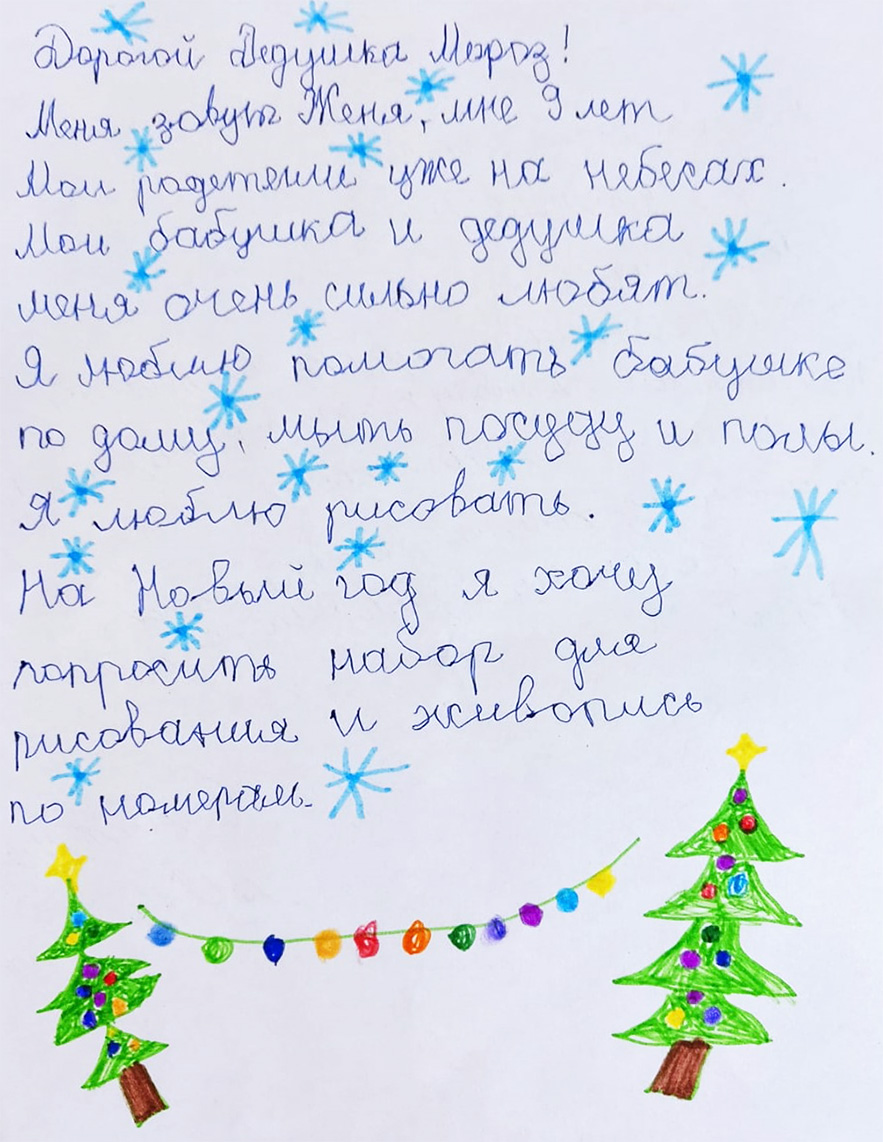 Дорогой Дедушка Мороз!
Меня зовут Женя, мне 9 лет
Мои родетели уже на небесах.
Мои бабушка и дедушка
меня очень сильно любят.
Я люблю помогать бабушке
по дому, мыть посуду и полы.
Я люблю рисовать.
На Новый год я хочу
попросить набор для
рисования и живопись
по номерам.